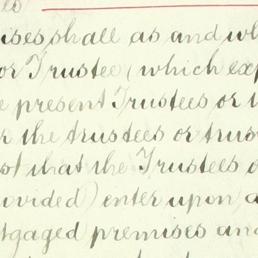 ises shall as and wh
or Trustee (which exp
e present Trustees or t
r the trustees or trus
st that the Trustees o
ivided) enter upon a
tgaged premises and